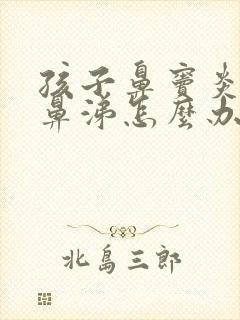 孩子鼻竇炎
鼻涕怎麼办
北島三郎